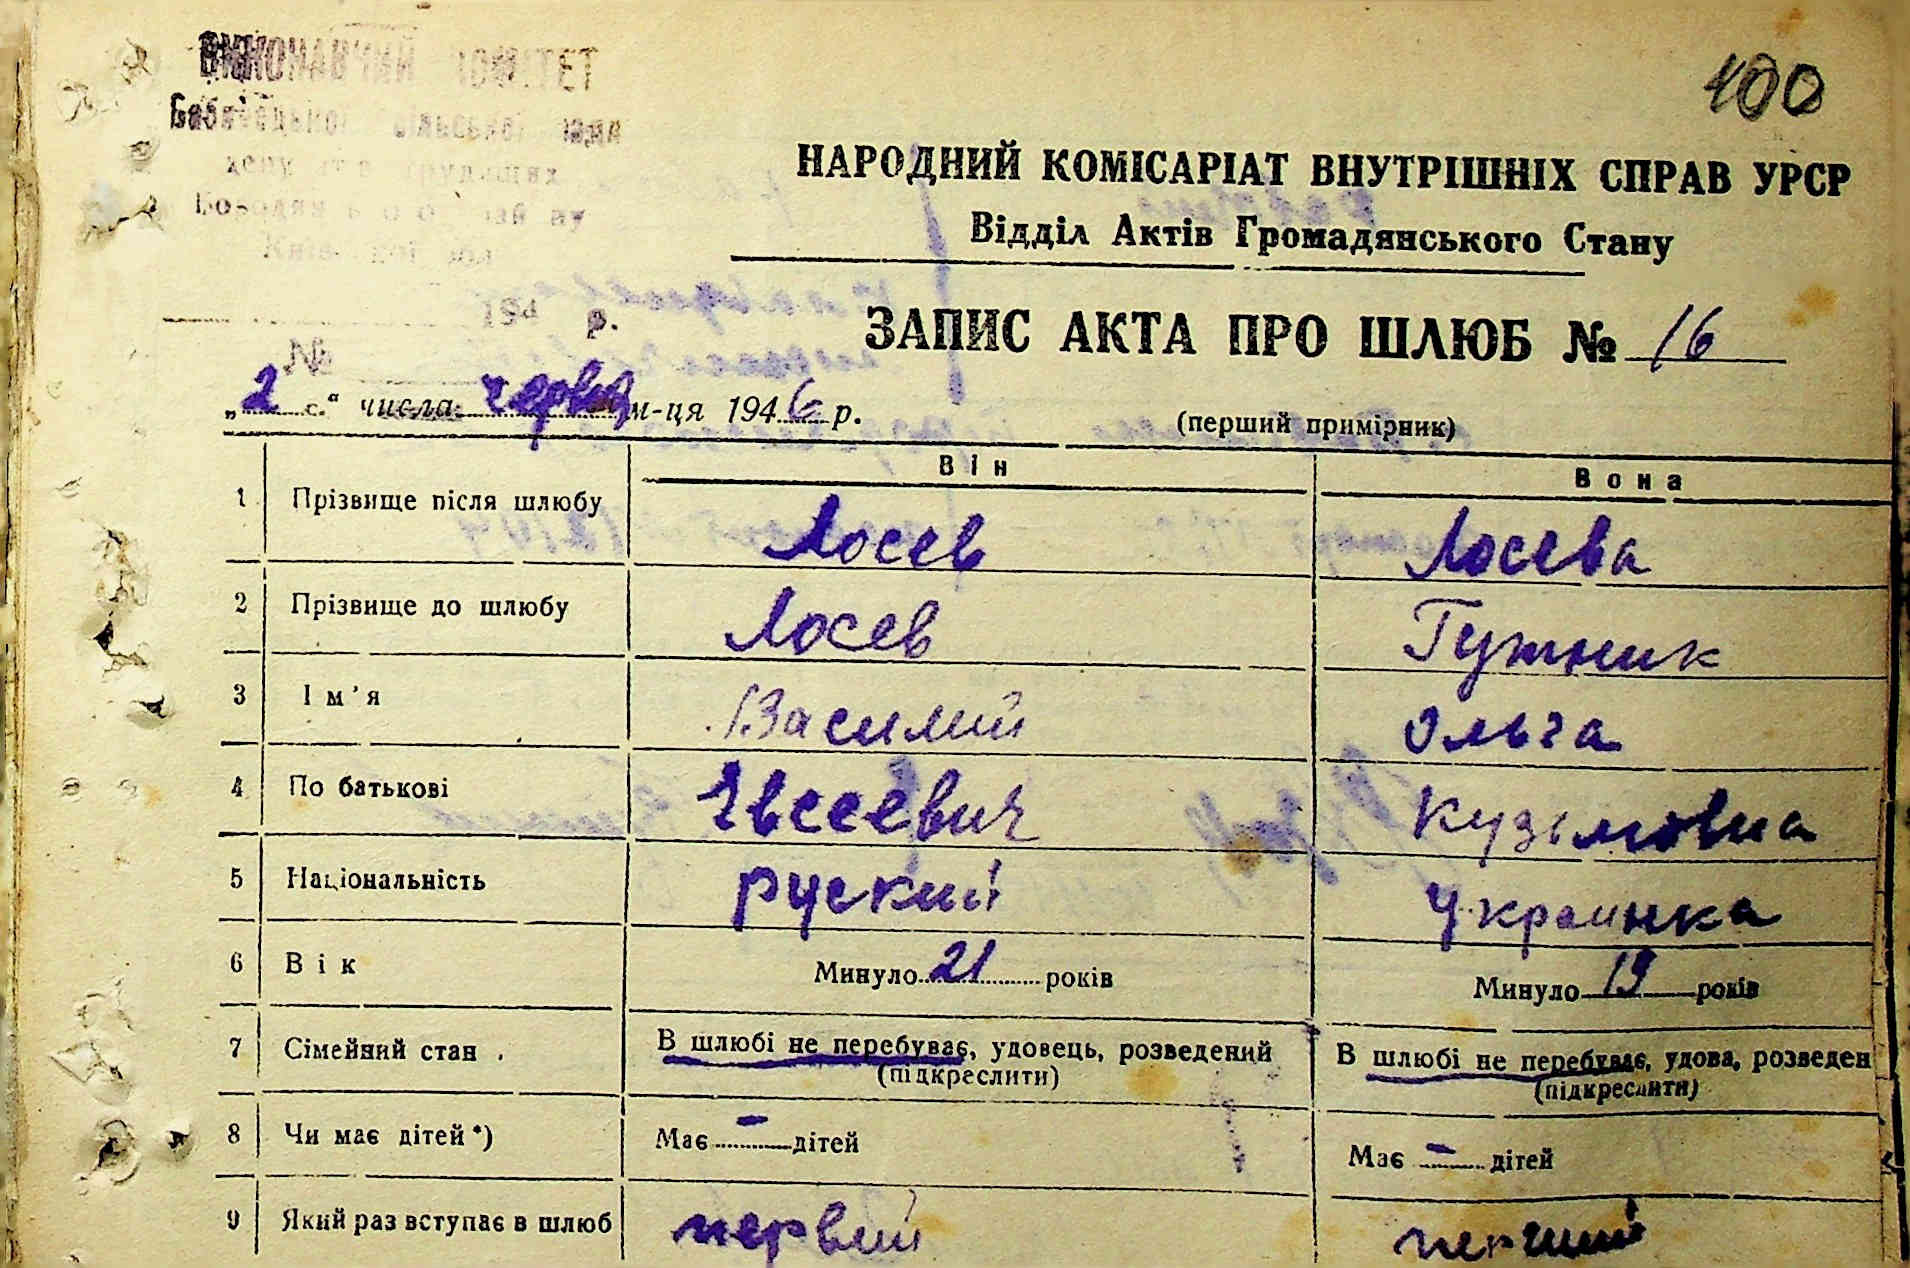 100
ВИКОНАВЧИЙ КОМІТЕТ
НАРОДНИЙ КОМІСАРІАТ ВНУТРІШНІХ СПРАВ УРСР
Відділ Актів Громадянського Стану
194 р.
ЗАПИС АКТА ПРО ШЛЮБ № 16
№
„2“ числа червня м-ця 1946 р.
(перший примірник)
Він Вона
1 Прізвище після шлюбу Лосев Лосева
2 Прізвище до шлюбу Лосев Гутник
3 Ім’я Василий Ольга
4 По батькові Евсеевич Кузьмовна
5 Національність руский Украинка
6 Вік Минуло 21 років Минуло 19 років
7 Сімейний стан В шлюбі не перебуває, удовець, розведений В шлюбі не перебуває, удова, розведен
(підкреслити) (підкреслити)
8 Чи має дітей*) Має - дітей Має - дітей
9 Який раз вступає в шлюб первий перший